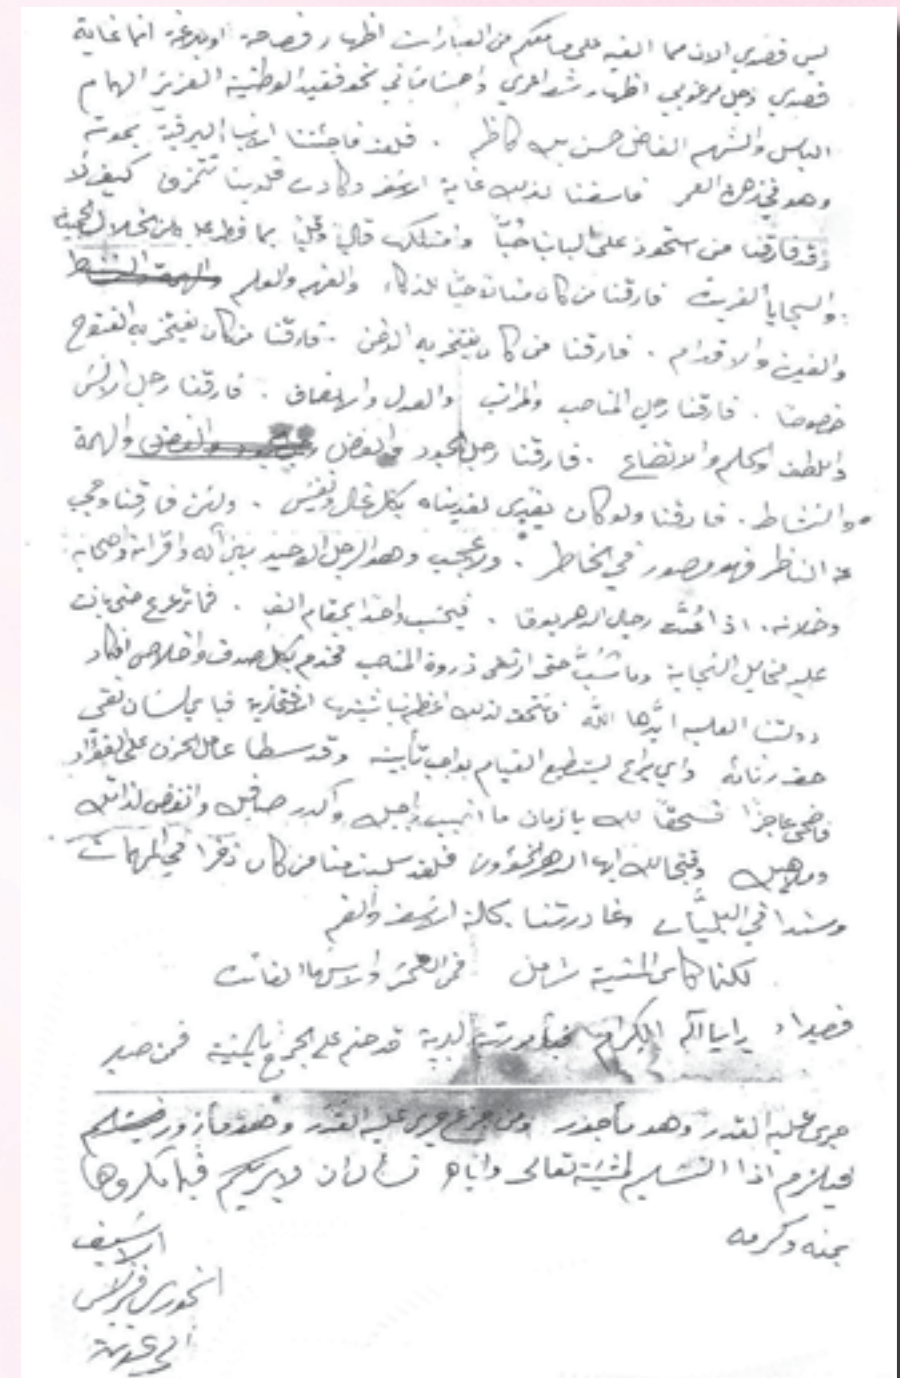 ليس قصدي الان مما القيه على مسامعكم من العبارات اظهار فصاحة او بلاغة انما غاية
قصدي وجل مرغوبي اظهار شعائري واحساساتي نحو فقيد الوطنية العزيز الهمام
الباسل والشهم الفاضل حسن بك كاظم . فلقد فاجئتنا الانباء البرقية بموته
وهو في زهرة العمر فاسفنا لذلك غاية الاسف وكادت قلوبنا تتمزق كيف لا
وقد فارقنا من استحوذ على البابنا حباً وامتلك قلوبنا بما فطر عليه من الخلال الحميدة
والسجايا الفريدة فارقنا من كان مثالا حياً للذكاء والفهم والعلم
والفن والاقدام . فارقنا من كان يفتخر به الوطن . فارقنا من كان يفتخر به الفتوح
خصوصا . فارقنا رجل المناصب والمراتب والعدل والانصاف . فارقنا رجل الانس
واللطف والحلم والاتضاع . فارقنا رجل الجود والفضل والهمة
والنشاط . فارقنا ولو كان يفتدى لفديناه بكل غال ونفيس . ولئن فارقنا وحجب
عن الناظر فهو مصور في الخاطر . ولا عجب وهو الرجل الوحيد بين آله واقرانه واصحابه
وخلانه . اذا عُدَّت رجال الدهر يوما . فيحسب واحدا بمقام الف . فما ترعرع حتى بانت
عليه مخايل النجابة وما شبَّ حتى ارتقى ذروة المناصب فخدم بكل صدق واخلاص افكار
دولتنا العلية ايَّدها الله فاستحق لذلك اعظم نياشينها الافتخارية فباي لسان نفي
حقه رثائه واي يراع يستطيع القيام بواجب تأبينه وقد سطا عامل الحزن على الفؤاد
فاضحى عاجزا فسحقا لك يا زمان ما اخيب واكدر صافيك وانغص لذاتك
وملاهيك وقبحا لك ايها الدهر الخؤون فلقد سلبت منا من كان ذخرا في المهمات
وسندا في البليَّات وغادرتنا بحالة الاسف والغم
لكنما كأس المنية شامل
فصبراً يا آله الكرام البرية قد حتم على الجميع بالمنية فمن صبر
جرى عليه القدر وهو مأجور ومن جزع جرى عليه القدر وهو مأزور
فيلزم اذا التسليم لمشيئته تعالى واياه نسأل ان لا يريكم فيما مكروها
بمنه وكرمه
الاسيف
الخوري